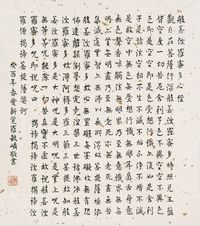 般若波羅蜜多心經
觀自在菩薩行深般若波羅蜜多時照見五蘊
皆空度一切苦厄舍利子色不異空空不異
色色即是空空即是色受想行識亦復如是舍利
子是諸法空相不生不滅不垢不淨不增不
減是故空中無色無受想行識無眼耳鼻舌身意
無色聲香味觸法無眼界乃至無意識界無
無明亦無無明盡乃至無老死亦無老死盡無苦
集滅道無智亦無得以無所得故菩提薩埵
依般若波羅蜜多故心無罣礙無罣礙故無有恐
怖遠離顛倒夢想究竟涅槃三世諸佛依般若
波羅蜜多故得阿耨多羅三藐三菩提故知般若
波羅蜜多是大神咒是大明咒是無上咒是
無等等咒能除一切苦真實不虛故說般若波
羅蜜多咒即說咒曰揭諦揭諦波羅揭諦波
羅僧揭諦菩提薩婆訶
癸酉年春 敬書